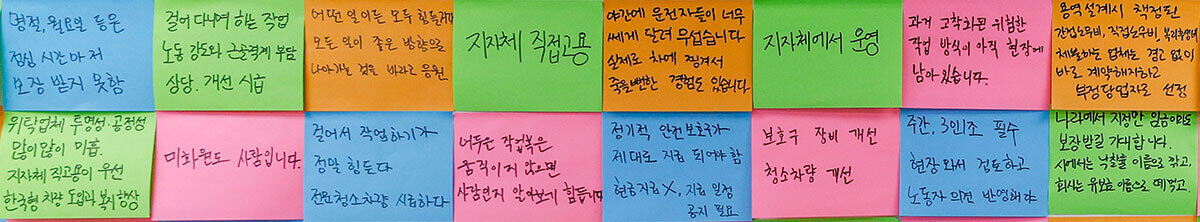 명절, 월요일 등은
점심 시간마저
보장 받지 못함
걸어다니며 하는 작업
노동강도와 근골격계 부담
상당. 개선 시급
어떤 일이든 모두 힘들지만
모든 일이 좋은 방향으로
나아가는 것을 바라고 응원
지자체 직접고용
야간에 운전자들이 너무
쎄게 달려 무섭습니다
실제로 차에 찡겨서
죽을뻔한 경험도 있습니다
지자체에서 운영
과거 고착화된 위험한
작업 방식이 아직 현장에
남아있습니다.
용역설계시 책정된
간접노무비, 직접노무비, 복리후생비
체불하는 업체는 경고 없이
바로 계약해지하고
부정당업자로 선정
위탁업체 투명성·공정성
많이많이 미흡.
지자체 직고용이 우선
한국형 차량 도입과 복지향상
미화원도 사람입니다.
걸어서 작업하기가
정말 힘든다
전문청소차량 시급하다
어두운 작업복은
움직이지 않으면
사람인지 알아보기 힘듭니다
정기적 안전보호구가
제대로 지급 되어야 함
현금지급 X, 지급 일정
공지 필요
보호구 장비 개선
청소차량 개선
주간, 3인1조 필수
현장 와서 검토하고
노동자 의견 반영해라
나라에서 지정한 임금이라도
보장받길 기대합니다.
시에서는 낙찰율 이름으로 깎고,
회사는 유보율 이름으로 떼먹고,